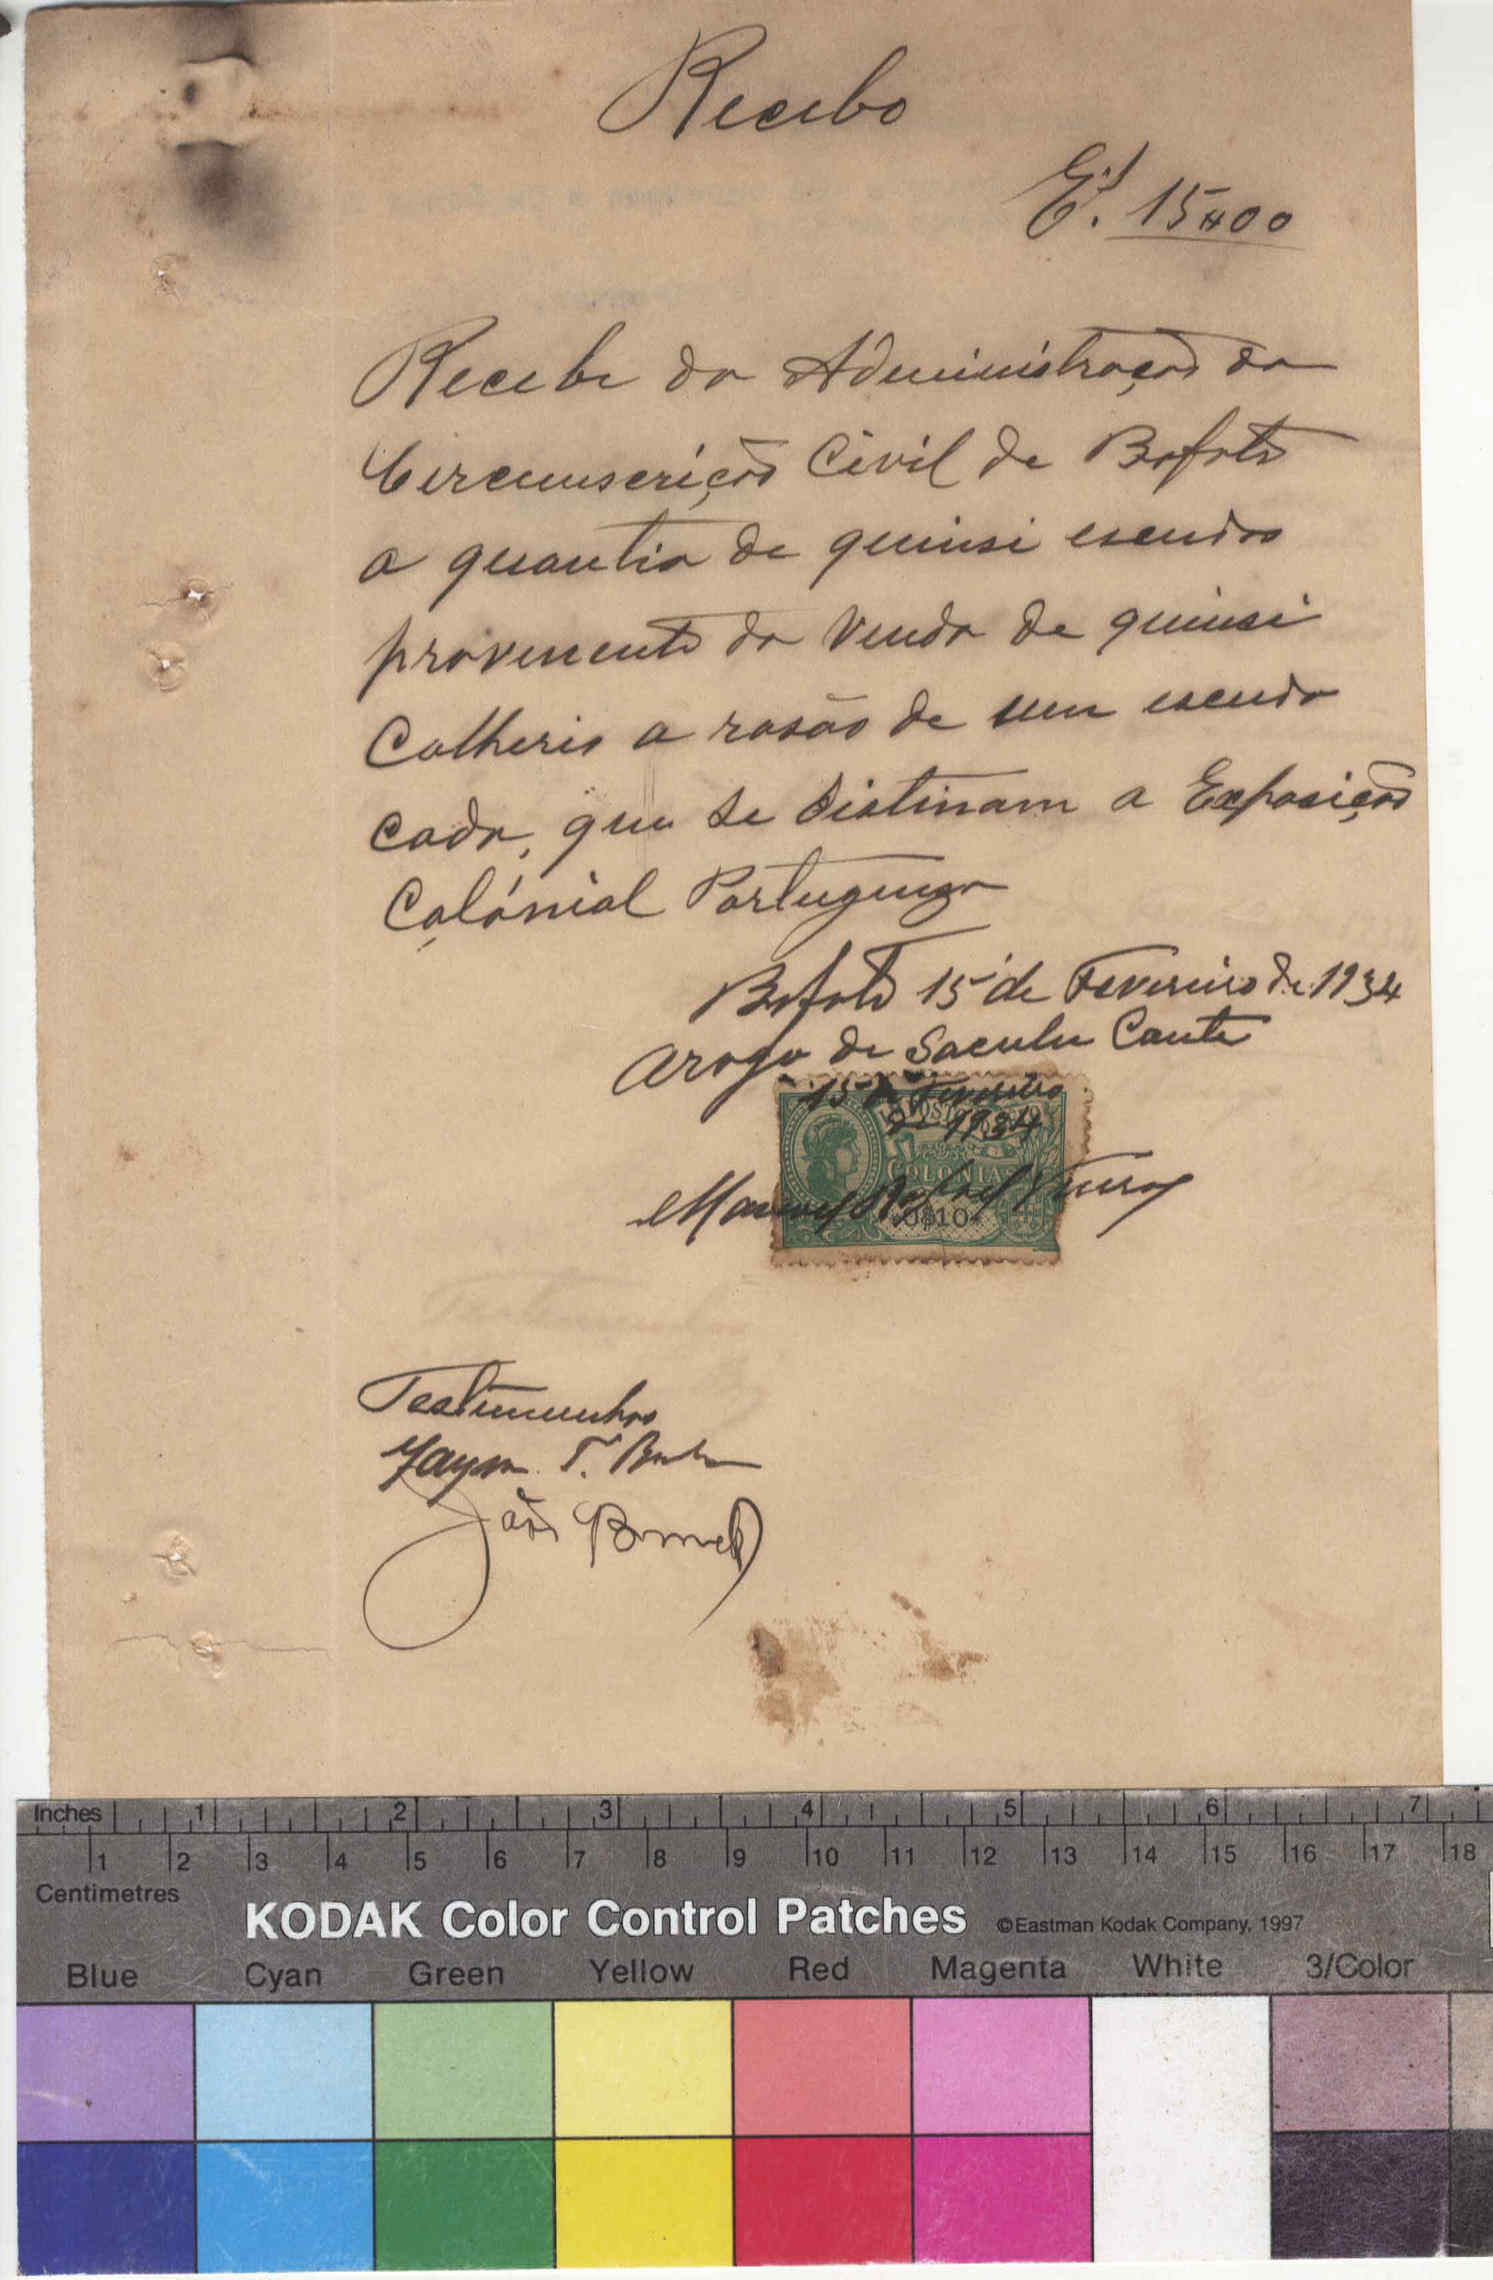 Recibo
Es. 15$00
Recebi da Administração da
Circunscrição Civil de Bafatá
a quantia de quinsi escudos
proveniente da venda de quinsi
Colheris a rasão de um escudo
cada, que se distinam a Exposição
Colónial Portugueza
Bafatá 15 de Fevereiro de 1934
Arogo de Saculu Cante
15 de Fevereiro
de 1934
COLONIAS
Manuel Rafael Vieira
0$10
Testimunhas
João
Inches 1 2 3 4 5 6 7
1 2 3 4 5 6 7 8 9 10 11 12 13 14 15 16 17 18
Centimetres
KODAK Color Control Patches ©Eastman Kodak Company, 1997
Blue Cyan Green Yellow Red Magenta White 3/Color